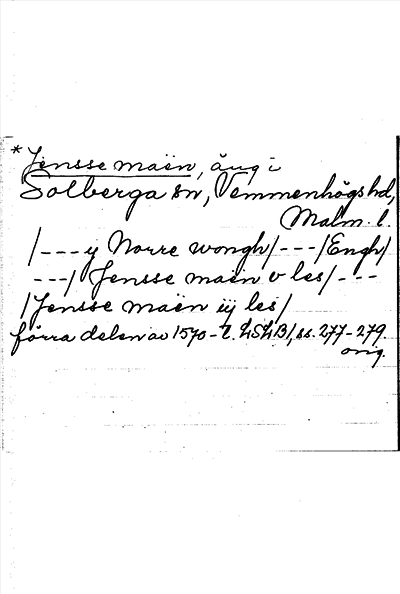 * Jensse maën, äng i
Solberga sn, Vemmenhögs hd,
Malm. l.
/--- y Norre wongh/---/Engh/
---/ Jensse maën v les/---
/Jensse maën iij les/
förra delen av 1570-t. LSLB, ss. 277-279.
orig.